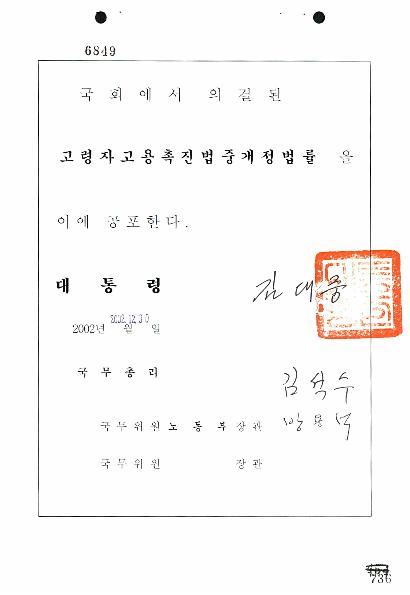 6849
국회에서 의결된
고령자고용촉진법중개정법률 을
이에 공포한다.
대통령 김대중
2002.12.30
2002년 월 일
국무총리 김석수
국무위원 노동부장관 방용석
국무위원 장관
736